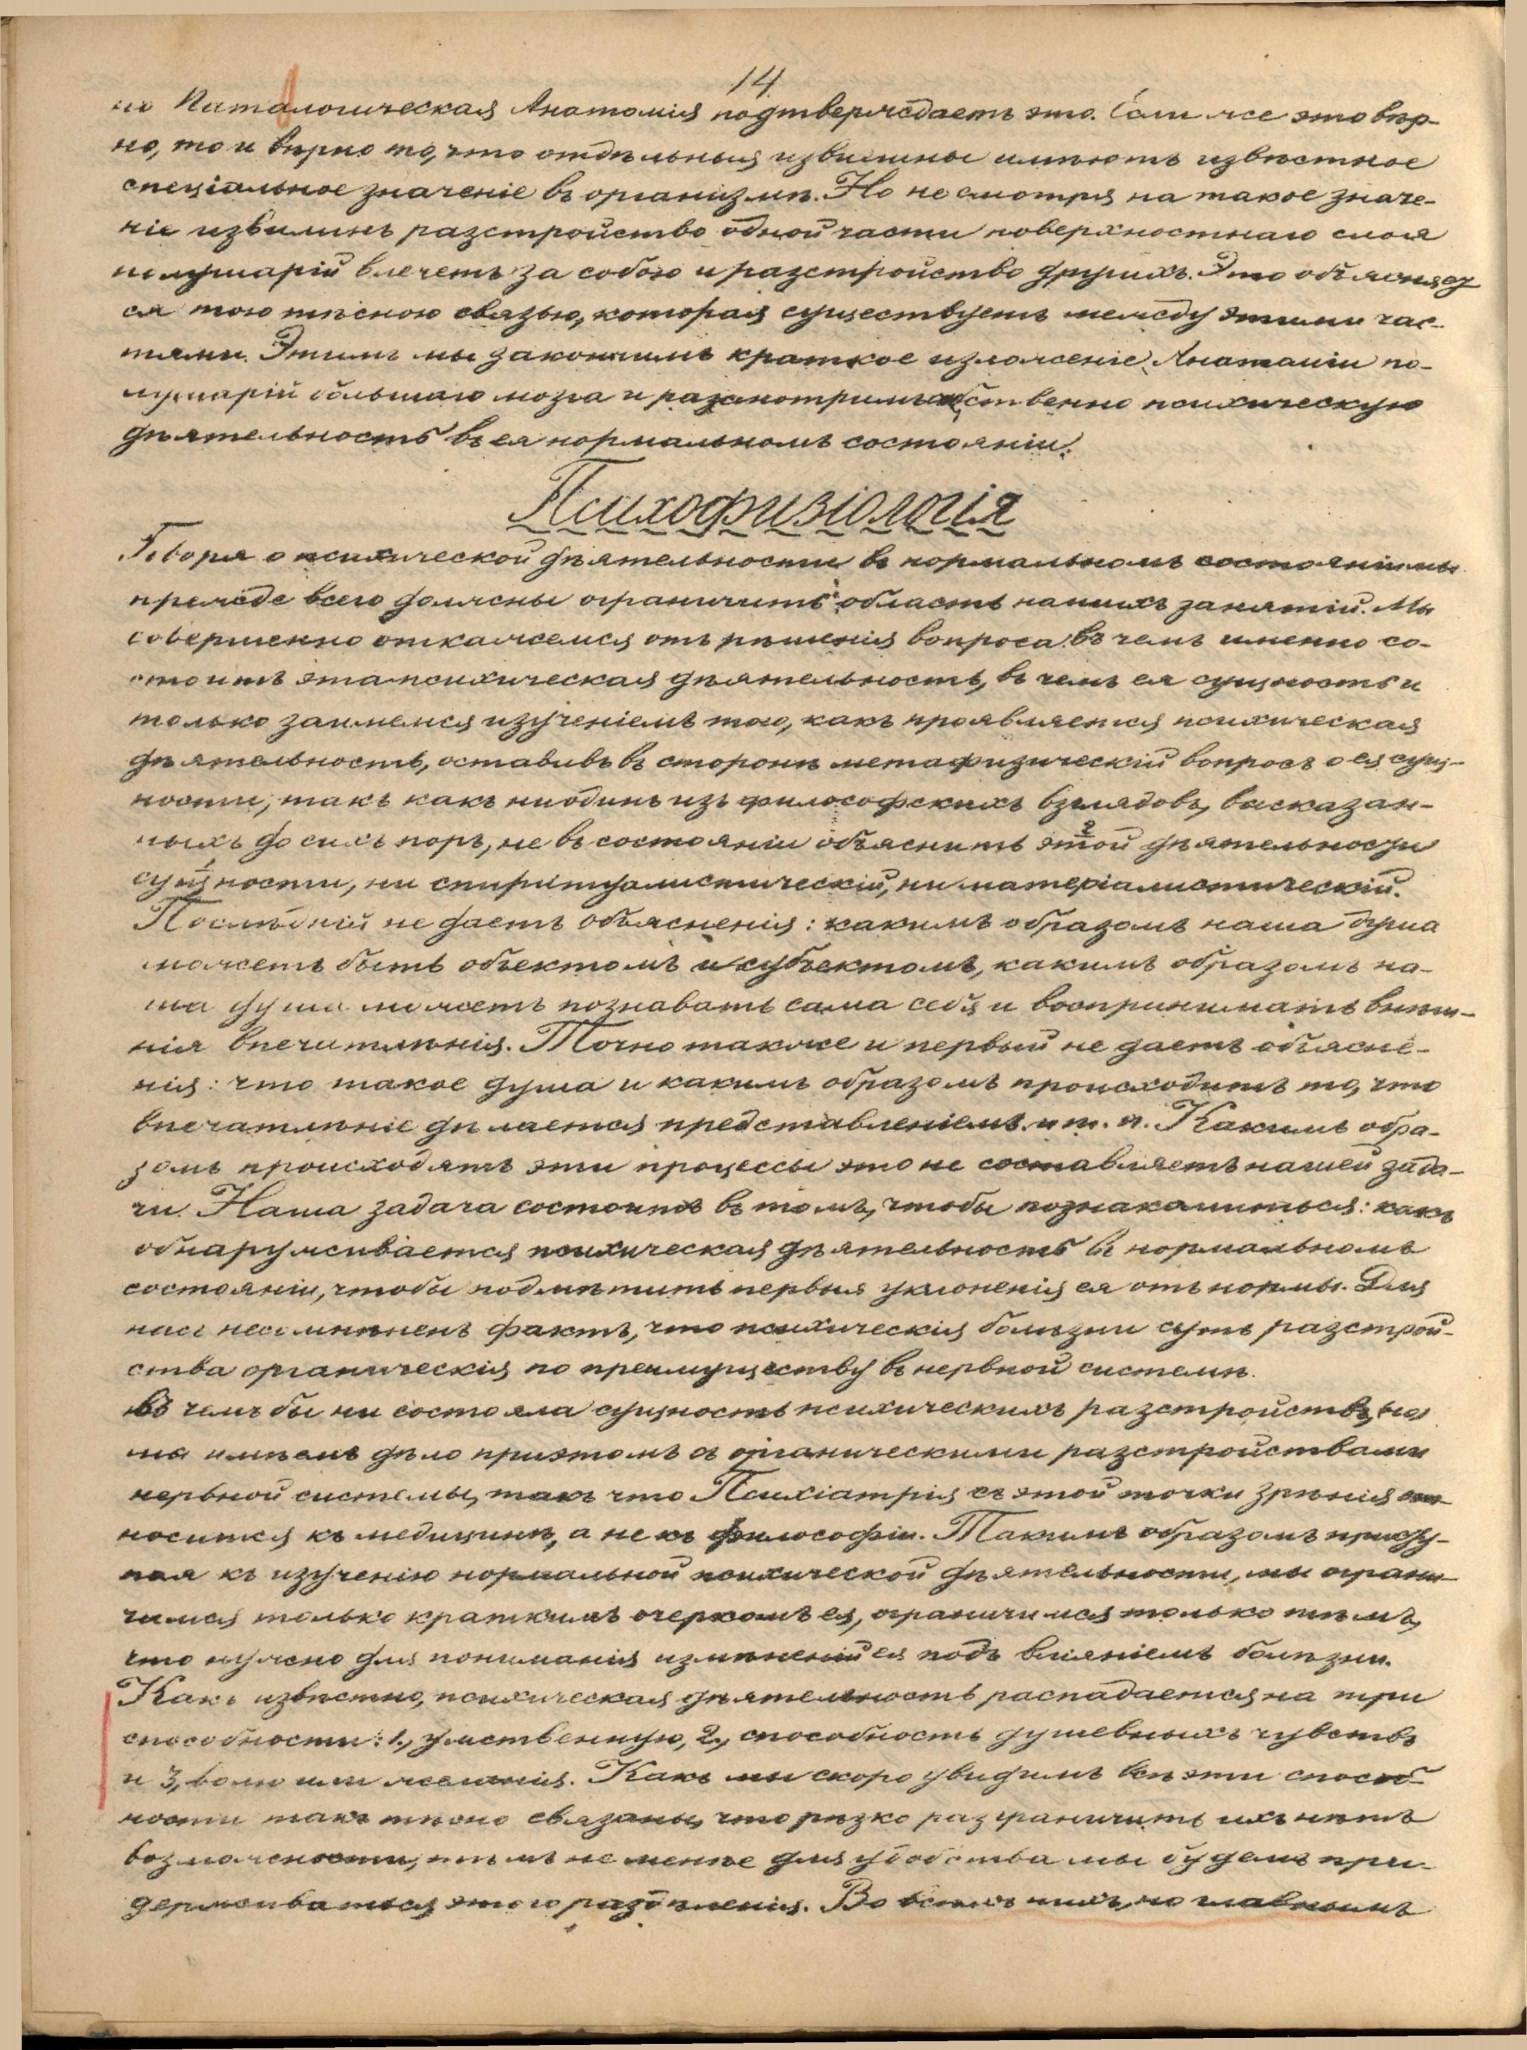 14
но Паталогическая Анатомія подтверждаетъ это. Если же это вѣр-
но, то и вѣрно то, что отдѣльныя извилины имѣютъ извѣстное
спеціальное значеніе въ организмѣ. Но не смотря на такое значе-
ніе извилинъ разстройство одной части поверхностнаго слоя
полушарій влечетъ за собою и разстройство другихъ. Это объясняет
ся тою тѣсною связью, которая существуетъ между этими час-
тями. Этимъ мы закончимъ краткое изложеніе Анатоміи по-
лушарій большаго мозга и разсмотримъ собственно психическую
дѣятельность въ ея нормальномъ состояніи.
Психофизіологія
Говоря о психической дѣятельности въ нормальномъ состояніи мы
прежде всего должны ограничить область нашихъ занятій. Мы
совершенно откажемся отъ рѣшенія вопроса въ чемъ именно со-
стоитъ эта психическая дѣятельность, въ чемъ ея сущность и
только займемся изученіемъ того, какъ проявляется психическая
дѣятельность, оставивъ въ сторонѣ метафизическій вопросъ о ея сущ-
ности, такъ какъ ниодинъ изъ философскихъ взглядовъ, высказан-
ныхъ до сихъ поръ, не въ состояніи объяснить этой 2 дѣятельности
сущности 1, ни спиритуалистическій, ни матеріалистическій.
Послѣдній не даетъ объясненія: какимъ образомъ наша душа
можетъ быть объектомъ и субъектомъ, какимъ образомъ на-
ша душа можетъ познавать сама себя и воспринимать внѣш-
нія впечатлѣнія. Точно также и первый не даетъ объясне-
нія: что такое душа и какимъ образомъ происходитъ то, что
впечатлѣніе дѣлается представленіемъ и т. п. Какимъ обра-
зомъ происходятъ эти процессы это не составляетъ нашей зада-
чи. Наша задача состоитъ въ томъ, чтобы познакомиться: какъ
обнаруживается психическая дѣятельность въ нормальномъ
состояніи, чтобы подмѣтить первыя уклоненія ея отъ нормы. Для
насъ несомнѣненъ фактъ, что психическія болѣзни суть разстрой-
ства органическія по преимуществу въ нервной системѣ.
Въ чемъ бы ни состояла сущность психическихъ разстройствъ, но
мы имѣемъ дѣло приэтомъ съ органическими разстройствами
нервной системы, такъ что Психіатрія съ этой точки зрѣнія от
носится къ медицинѣ, а не къ философіи. Такимъ образомъ присту-
пая къ изученію нормальной психической дѣятельности, мы ограни-
чимся только краткимъ очеркомъ ея, ограничимся только тѣмъ,
что нужно для пониманія измѣненій ея подъ вліяніемъ болѣзни.
Какъ извѣстно, психическая дѣятельность распадается на три
способности: 1, умственную, 2, способность душевныхъ чувствъ
и 3, волю или желанія. Какъ мы скоро увидимъ всѣ эти способ-
ности такъ тѣсно связаны, что рѣзко разграничить ихъ нѣтъ
возможности, тѣмъ не менѣе для удобства мы будемъ при-
держиваться этого раздѣленія. Во всѣхъ нихъ, но главнымъ